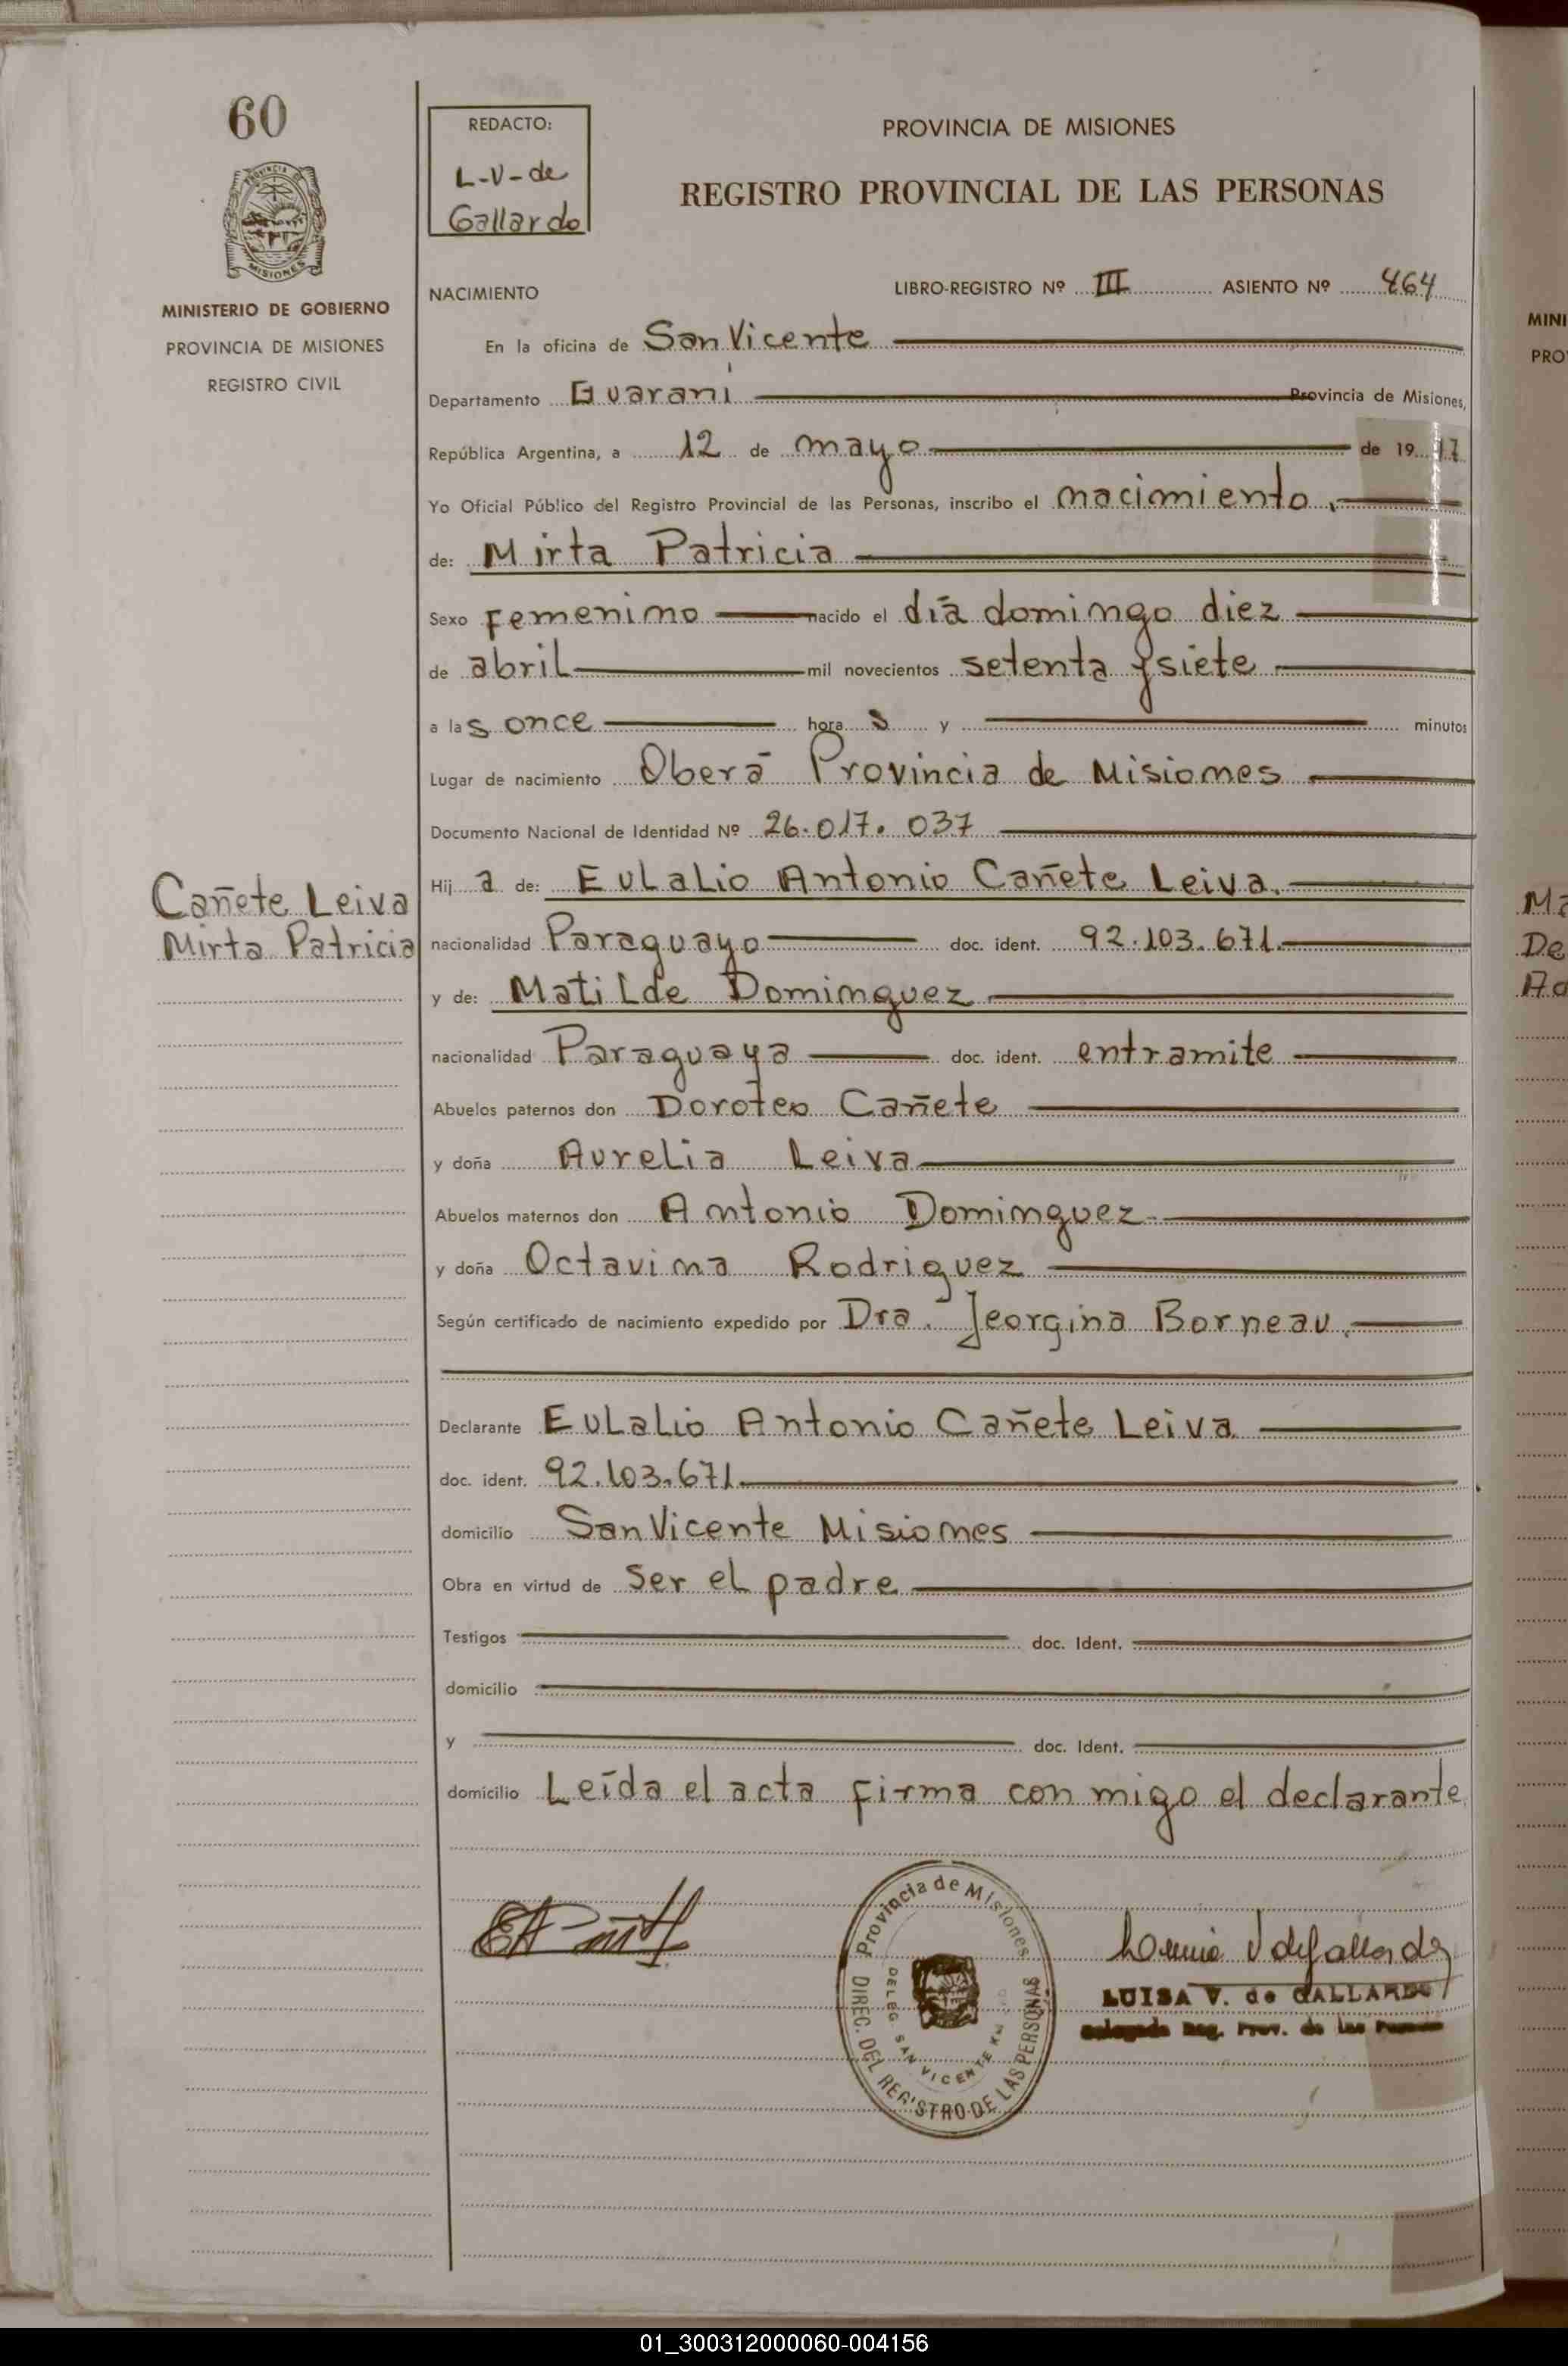 60
PROVINCIA DE
MISIONES
MINISTERIO DE GOBIERNO
PROVINCIA DE MISIONES
REGISTRO CIVIL
Cañete Leiva
Mirta Patricia
REDACTO:
L-V-de
Gallardo
PROVINCIA DE MISIONES
REGISTRO PROVINCIAL DE LAS PERSONAS
NACIMIENTO LIBRO-REGISTRO Nº III ASIENTO Nº 464
En la oficina de San Vicente
Departamento Guaraní Provincia de Misiones,
República Argentina, a 12 de mayo de 19
Yo Oficial Público del Registro Provincial de las Personas, inscribo el nacimiento.
de: Mirta Patricia
Sexo Femenino nacido el día domingo diez
de abril mil novecientos setenta y siete
a las once horas y minutos
Lugar de nacimiento Oberá Provincia de Misiones
Documento Nacional de Identidad Nº 26.017.037
Hija de: Eulalio Antonio Cañete Leiva.
nacionalidad Paraguayo doc. ident. 92.103.671.
y de: Matilde Dominguez
nacionalidad Paraguaya doc. ident. entramite
Abuelos paternos don Doroteo Cañete
y doña Aurelia Leiva
Abuelos maternos don Antonio Dominguez
y doña Octavina Rodriguez
Según certificado de nacimiento expedido por Dra. Jeorgina Borneau.
Declarante Eulalio Antonio Cañete Leiva
doc. ident. 92.103.671.
domicilio San Vicente Misiones
Obra en virtud de ser el padre
Testigos doc. Ident.
domicilio
y doc. Ident.
domicilio Leída el acta firma con migo el declarante
Provincia de Misiones
DIREC. DEL REGISTRO DE LAS PERSONAS
DELEG. SAN VICENTE
LUISA V. de GALLARDO
Delegada Reg. Prov. de las
MINI
PRO
Ma
De
01_300312000060-004156